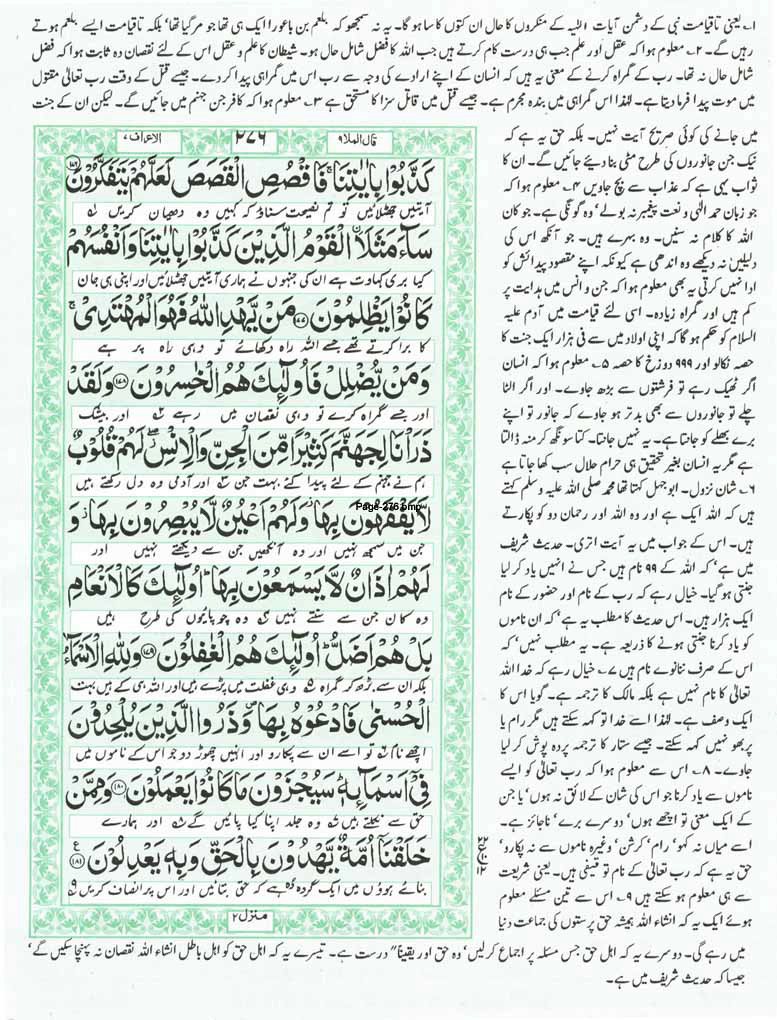 ۱۔ یعنی تاقیامت نبی کے دشمن آیات الٰہیہ کے منکروں کا حال ان کتوں کا سا ہو گا۔ یہ نہ سمجھو کہ بلعم بن باعورا ایک ہی تھا جو مر گیا تھا‘ بلکہ تاقیامت ایسے بلعم ہوتے
رہیں گے۔ ۲۔ معلوم ہوا کہ عقل اور علم جب ہی درست کام کرتے ہیں جب اللہ کا فضل شامل حال ہو۔ شیطان کا علم و عقل اس کے لئے نقصان دہ ثابت ہوا کہ فضل
شامل حال نہ تھا۔ رب کے گمراہ کرنے کے معنی یہ ہیں کہ انسان کے اپنے ارادے کی وجہ سے رب اس میں گمراہی پیدا کر دے۔ جیسے قتل کے وقت رب تعالیٰ مقتول
میں موت پیدا فرما دیتا ہے۔ لہٰذا اس گمراہی میں بندہ مجرم ہے۔ جیسے قتل میں قاتل سزا کا مستحق ہے ۳۔ معلوم ہوا کہ کافر جن جہنم میں جائیں گے۔ لیکن ان کے جنت
میں جانے کی کوئی صریح آیت نہیں۔ بلکہ حق یہ ہے کہ
نیک جن جانوروں کی طرح مٹی بنا دیئے جائیں گے۔ ان کا
ثواب یہی ہے کہ عذاب سے بچ جاویں ۴۔ معلوم ہوا کہ
جو زبان حمد الٰہی و نعت پیغمبر نہ بولے‘ وہ گونگی ہے۔ جو کان
اللہ کا کلام نہ سنیں۔ وہ بہرے ہیں۔ جو آنکھ اس کی
دلیلیں نہ دیکھے وہ اندھی ہے کیونکہ اپنے مقصود پیدائش کو
ادا نہیں کرتی یہ بھی معلوم ہوا کہ جن و انس میں ہدایت پر
کم ہیں اور گمراہ زیادہ۔ اسی لئے قیامت میں آدم علیہ
السلام کو حکم ہو گا کہ اپنی اولاد میں سے فی ہزار ایک جنت کا
حصہ نکالو اور ۹۹۹ دوزخ کا حصہ ۵۔ معلوم ہوا کہ انسان
اگر ٹھیک رہے تو فرشتوں سے بڑھ جاوے۔ اور اگر الٹا
چلے تو جانوروں سے بھی بدتر ہو جاوے کہ جانور تو اپنے
برے بھلے کو جانتا ہے۔ یہ نہیں جانتا۔ کتا سونگھ کر منہ ڈالتا
ہے مگر یہ انسان بغیر تحقیق ہی حرام حلال سب کھا جاتا ہے
۶۔ شان نزول۔ ابوجہل کہتا تھا محمد صلی اللہ علیہ وسلم کہتے
ہیں کہ اللہ ایک ہے اور وہ اللہ اور رحمان دو کو پکارتے
ہیں۔ اس کے جواب میں یہ آیت اتری۔ حدیث شریف
میں ہے‘ کہ اللہ کے ۹۹ نام ہیں جس نے انہیں یاد کر لیا
جنتی ہو گیا۔ خیال رہے کہ رب کے نام اور حضور کے نام
ایک ہزار ہیں۔ اس حدیث کا مطلب یہ ہے‘ کہ ان ناموں
کو یاد کرنا جنتی ہونے کا ذریعہ ہے۔ یہ مطلب نہیں‘ کہ
اس کے صرف ننانوے نام ہیں ۷۔ خیال رہے کہ خدا اللہ
تعالیٰ کا نام نہیں ہے بلکہ مالک کا ترجمہ ہے۔ گویا اس کا
ایک وصف ہے۔ لہٰذا اسے خدا تو کہہ سکتے ہیں مگر رام یا
پربھو نہیں کہہ سکتے۔ جیسے ستار کا ترجمہ پردہ پوش کر لیا
جاوے۔ ۸۔ اس سے معلوم ہوا کہ رب تعالیٰ کو ایسے
ناموں سے یاد کرنا جو اس کی شان کے لائق نہ ہوں‘ یا جن
کے ایک معنی تو اچھے ہوں‘ دوسرے برے‘ ناجائز ہے۔
اسے میاں نہ کہو‘ رام‘ کرشن‘ وغیرہ ناموں سے نہ پکارو‘
حق یہ ہے کہ رب تعالیٰ کے نام توقیفی ہیں۔ یعنی شریعت
سے ہی معلوم ہو سکتے ہیں ۹۔ اس سے تین مسئلے معلوم
ہوئے ایک یہ کہ انشاء اللہ ہمیشہ حق پرستوں کی جماعت دنیا
قال الملا ۹ ۲۷۶ الاعراف ۷
كَذَّبُوْا بِاٰيٰتِنَا ۚ فَاقْصُصِ الْقَصَصَ لَعَلَّهُمْ يَتَفَكَّرُوْنَ ﴿۱۷۶﴾
آیتیں جھٹلائیں تو تم نصیحت سناؤ کہ کہیں وہ دھیان کریں
سَآءَ مَثَلَا ۨالْقَوْمُ الَّذِيْنَ كَذَّبُوْا بِاٰيٰتِنَا وَاَنْفُسَهُمْ
کیا بری کہاوت ہے ان کی جنہوں نے ہماری آیتیں جھٹلائیں اور اپنی ہی جان
كَانُوْا يَظْلِمُوْنَ ﴿۱۷۷﴾ مَنْ يَّهْدِ اللّٰهُ فَهُوَ الْمُهْتَدِيْ ۚ
کا برا کرتے تھے جسے اللہ راہ دکھائے تو وہی راہ پر ہے
وَمَنْ يُّضْلِلْ فَاُولٰٓئِكَ هُمُ الْخٰسِرُوْنَ ﴿۱۷۸﴾ وَلَقَدْ
اور جسے گمراہ کرے تو وہی نقصان میں رہے اور بیشک
ذَرَاْنَا لِجَهَنَّمَ كَثِيْرًا مِّنَ الْجِنِّ وَالْاِنْسِ ۖ لَهُمْ قُلُوْبٌ
ہم نے جہنم کے لئے پیدا کئے بہت جن اور آدمی وہ دل رکھتے ہیں
لَّا يَفْقَهُوْنَ بِهَا ۫ وَلَهُمْ اَعْيُنٌ لَّا يُبْصِرُوْنَ بِهَا ۫ وَ
Page-276.bmp
جن میں سمجھ نہیں اور وہ آنکھیں جن سے دیکھتے نہیں اور
لَهُمْ اٰذَانٌ لَّا يَسْمَعُوْنَ بِهَا ؕ اُولٰٓئِكَ كَالْاَنْعَامِ
وہ کان جن سے سنتے نہیں وہ چوپایوں کی طرح ہیں
بَلْ هُمْ اَضَلُّ ؕ اُولٰٓئِكَ هُمُ الْغٰفِلُوْنَ ﴿۱۷۹﴾ وَلِلّٰهِ الْاَسْمَآءُ
بلکہ ان سے بڑھ کر گمراہ وہی غفلت میں پڑے ہیں اور اللہ ہی کے ہیں بہت
الْحُسْنٰى فَادْعُوْهُ بِهَا ۪ وَذَرُوا الَّذِيْنَ يُلْحِدُوْنَ
اچھے نام تو اسے ان سے پکارو اور انہیں چھوڑ دو جو اس کے ناموں میں
فِيْٓ اَسْمَآئِهٖ ؕ سَيُجْزَوْنَ مَا كَانُوْا يَعْمَلُوْنَ ﴿۱۸۰﴾ وَمِمَّنْ
حق سے نکلتے ہیں وہ جلد اپنا کیا پائیں گے اور ہمارے
خَلَقْنَآ اُمَّةٌ يَّهْدُوْنَ بِالْحَقِّ وَبِهٖ يَعْدِلُوْنَ ﴿۱۸۱﴾ ع
بنائے ہوؤں میں ایک گروہ وہ ہے کہ حق بتائیں اور اس پر انصاف کریں ۹
۲۲
ع ۱۰
۱۲
منزل ۲
میں رہے گی۔ دوسرے یہ کہ اہل حق جس مسئلہ پر اجماع کر لیں‘ وہ حق اور یقیناً درست ہے۔ تیسرے یہ کہ اہل حق کو اہل باطل انشاء اللہ نقصان نہ پہنچا سکیں گے‘
جیسا کہ حدیث شریف میں ہے۔